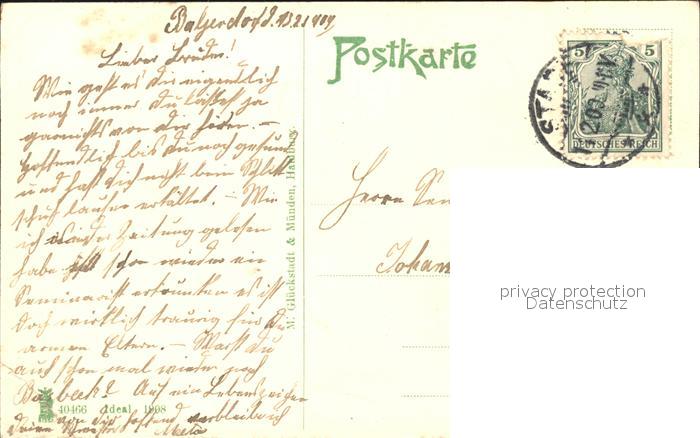 Balzersdorf d. 13.2.1909
Lieber Bruder!
Wie geht es dir eigentlich
noch immer du läßt ja
garnichts von dir hören. –
Hoffentlich bist du noch gesund
und hast dich nicht beim Schlitt-
schuhlaufen erkältet. – Wie
ich in der Zeitung gelesen
habe ist schon wieder ein
Seminarist ertrunken es ist
doch wirklich traurig für die
armen Eltern. – Warst du
auch schon mal wieder nach
Auf ein Lebenszeichen
von dir hoffend verbleibt
deine Schwester Meta
40466 Ideal 1908
M. Glückstadt & Münden, Hamburg.
Postkarte
5 5
DEUTSCHES REICH
Herrn
Johann
privacy protection
Datenschutz